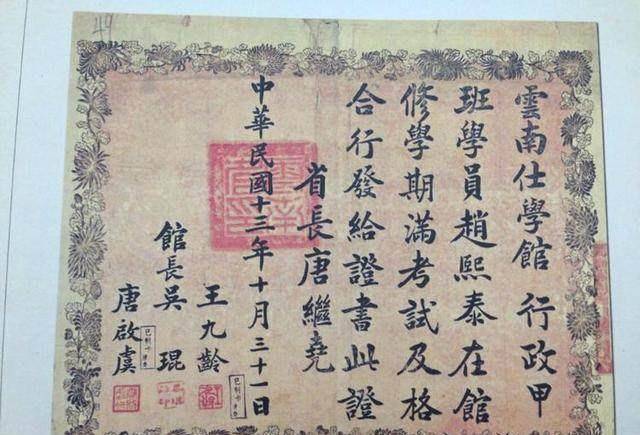 雲南仕學館行政甲
班學員趙熙泰在館
修學期滿考試及格
合行發給證書此證
省長唐繼堯
中華民國十三年十月三十一日
王九齡
館長吳琨
唐啟虞